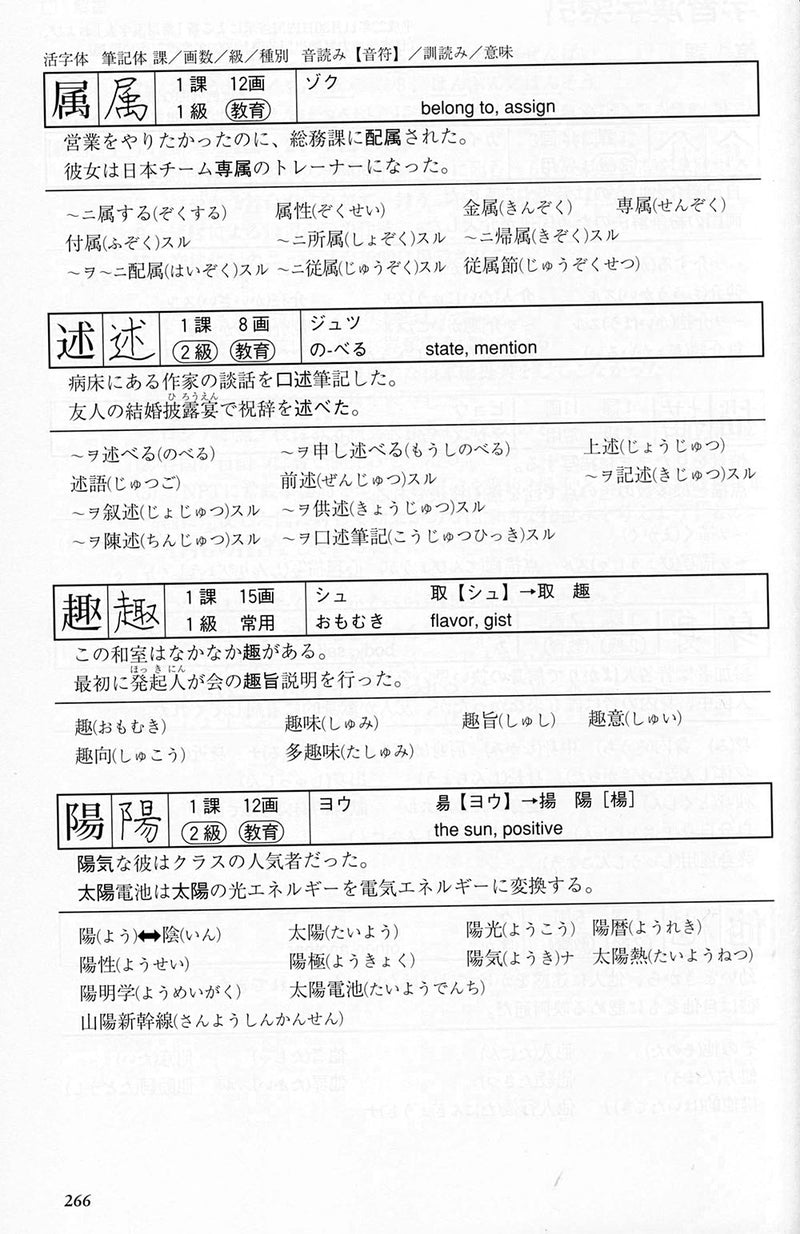 活字体　筆記体 課／画数／級／種別　音読み【音符】／訓読み／意味
属 属 1課 12画 ゾク
1級 教育 belong to, assign
営業をやりたかったのに、総務課に配属された。
彼女は日本チーム専属のトレーナーになった。
～ニ属する(ぞくする) 属性(ぞくせい) 金属(きんぞく) 専属(せんぞく)
付属(ふぞく)スル ～ニ所属(しょぞく)スル ～ニ帰属(きぞく)スル
～ヲ～ニ配属(はいぞく)スル ～ニ従属(じゅうぞく)スル 従属節(じゅうぞくせつ)
述 述 1課 8画 ジュツ
2級 教育 の-べる state, mention
病床にある作家の談話を口述筆記した。
ひ ろうえん
友人の結婚披露宴で祝辞を述べた。
～ヲ述べる(のべる) ～ヲ申し述べる(もうしのべる) 上述(じょうじゅつ)
述語(じゅつご) 前述(ぜんじゅつ)スル ～ヲ記述(きじゅつ)スル
～ヲ叙述(じょじゅつ)スル ～ヲ供述(きょうじゅつ)スル
～ヲ陳述(ちんじゅつ)スル ～ヲ口述筆記(こうじゅつひっき)スル
趣 趣 1課 15画 シュ 取【シュ】→取 趣
1級 常用 おもむき flavor, gist
この和室はなかなか趣がある。
ほっ き にん
最初に発起人が会の趣旨説明を行った。
趣(おもむき) 趣味(しゅみ) 趣旨(しゅし) 趣意(しゅい)
趣向(しゅこう) 多趣味(たしゅみ)
陽 陽 1課 12画 ヨウ 昜【ヨウ】→揚 陽［楊］
2級 教育 the sun, positive
陽気な彼はクラスの人気者だった。
太陽電池は太陽の光エネルギーを電気エネルギーに変換する。
陽(よう)⬌陰(いん) 太陽(たいよう) 陽光(ようこう) 陽暦(ようれき)
陽性(ようせい) 陽極(ようきょく) 陽気(ようき)ナ 太陽熱(たいようねつ)
陽明学(ようめいがく) 太陽電池(たいようでんち)
山陽新幹線(さんようしんかんせん)
266